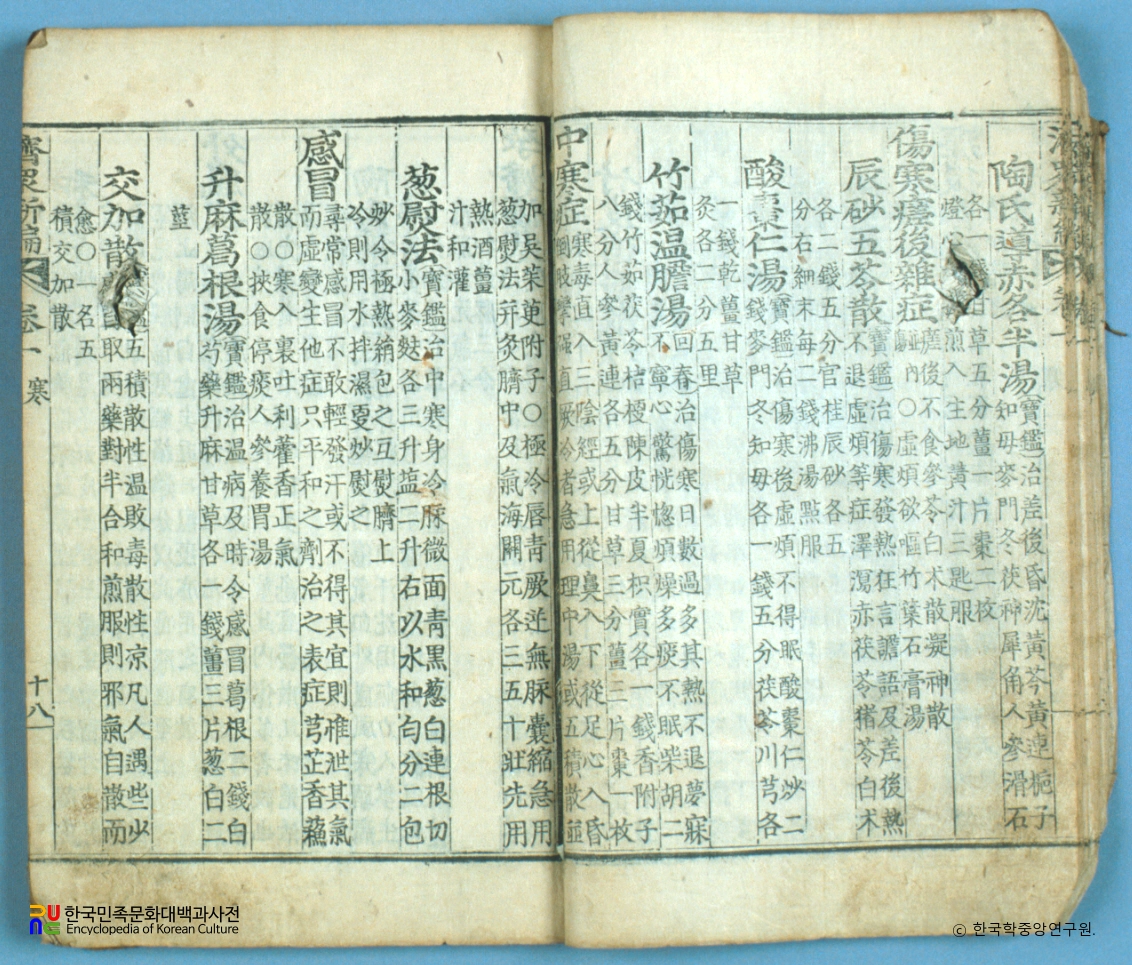 陶氏導赤各半湯 寶鑑治差後昏沈黃芩黃連梔子
知母麥門冬茯神犀角人參滑石
各一 甘草五分薑一片棗二枚
燈心 煎入生地黃汁三匙服
傷寒瘥後雜症 瘥後不食參苓白朮散凝神散
內〇虛煩欲嘔竹葉石膏湯
辰砂五苓散 寶鑑治傷寒發熱狂言譫語及差後熱
不退虛煩等症澤瀉赤茯苓猪苓白朮
各二錢五分官桂辰砂各五
分右細末每二錢沸湯點服
酸棗仁湯 寶鑑治傷寒後虛煩不得眠酸棗仁炒二
錢麥門冬知母各一錢五分茯苓川芎各
一錢乾薑甘草
灸各二分五里
竹茹温膽湯 回春治傷寒日數過多其熱不退夢寐
不寧心驚恍惚煩燥多痰不眠柴胡二
錢竹茹茯苓桔梗陳皮半夏枳實各一錢香附子
八分人參黃連各五分甘草三分薑三片棗一枚
中寒症 寒毒直入三陰經或上從鼻入下從足心入昏
直厥冷者急用理中湯或五積散並
加吳茱萸附子〇極冷唇青厥逆無脉囊縮急用
葱熨法幷灸臍中及氣海關元各三五十壯先用
熱酒薑
汁和灌
葱熨法 寶鑑治中寒身冷脉微面青黑葱白連根切
小麥麩各三升塩二升右以水和匀分二包
炒令極熱絹包之互熨臍上
冷則用水拌濕更炒熨之
感冒 尋常感冒不敢輕發汗或不得其宜則惟泄其氣
而虛變生他症只平和之劑治之表症芎芷香蘇
散〇寒入裏吐利藿香正氣
散〇挾食停痰人參養胃湯
升麻葛根湯 寶鑑治温病及時令感冒葛根二錢白
芍藥升麻甘草各一錢薑三片葱白二
莖
交加散 五積散性温敗毒散性凉凡人遇些少
取兩藥對半合和煎服則邪氣自散而
愈〇一名五
積交加散
濟衆新編 卷一 寒 十八
한국민족문화대백과사전
Encyclopedia of Korean Culture
ⓒ 한국학중앙연구원.